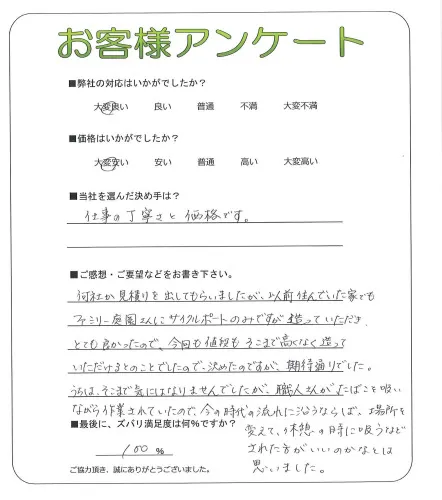 お客様アンケート
■弊社の対応はいかがでしたか?
大変良い 良い 普通 不満 大変不満
■価格はいかがでしたか?
大変安い 安い 普通 高い 大変高い
■当社を選んだ決め手は?
仕事の丁寧さと価格です。
■ご感想・ご要望などをお書き下さい。
何社か見積りを出してもらいましたが、以前住んでいた家でも
ファミリー庭園さんにサイクルポートのみですが造っていただき
とても良かったので、今回も値段もそこまで高くなく造って
いただけるとのことでしたので、決めたのですが、期待通りでした。
うちは、そこまで気にはなりませんでしたが、職人さんがたばこを吸い
ながら作業されていたので、今の時代の流れに沿うならば、場所を
変えて、休憩の時に吸うなど
された方がいいのかなとは
思いました。
■最後に、ズバリ満足度は何%ですか?
100 %
ご協力頂き、誠にありがとうございました。